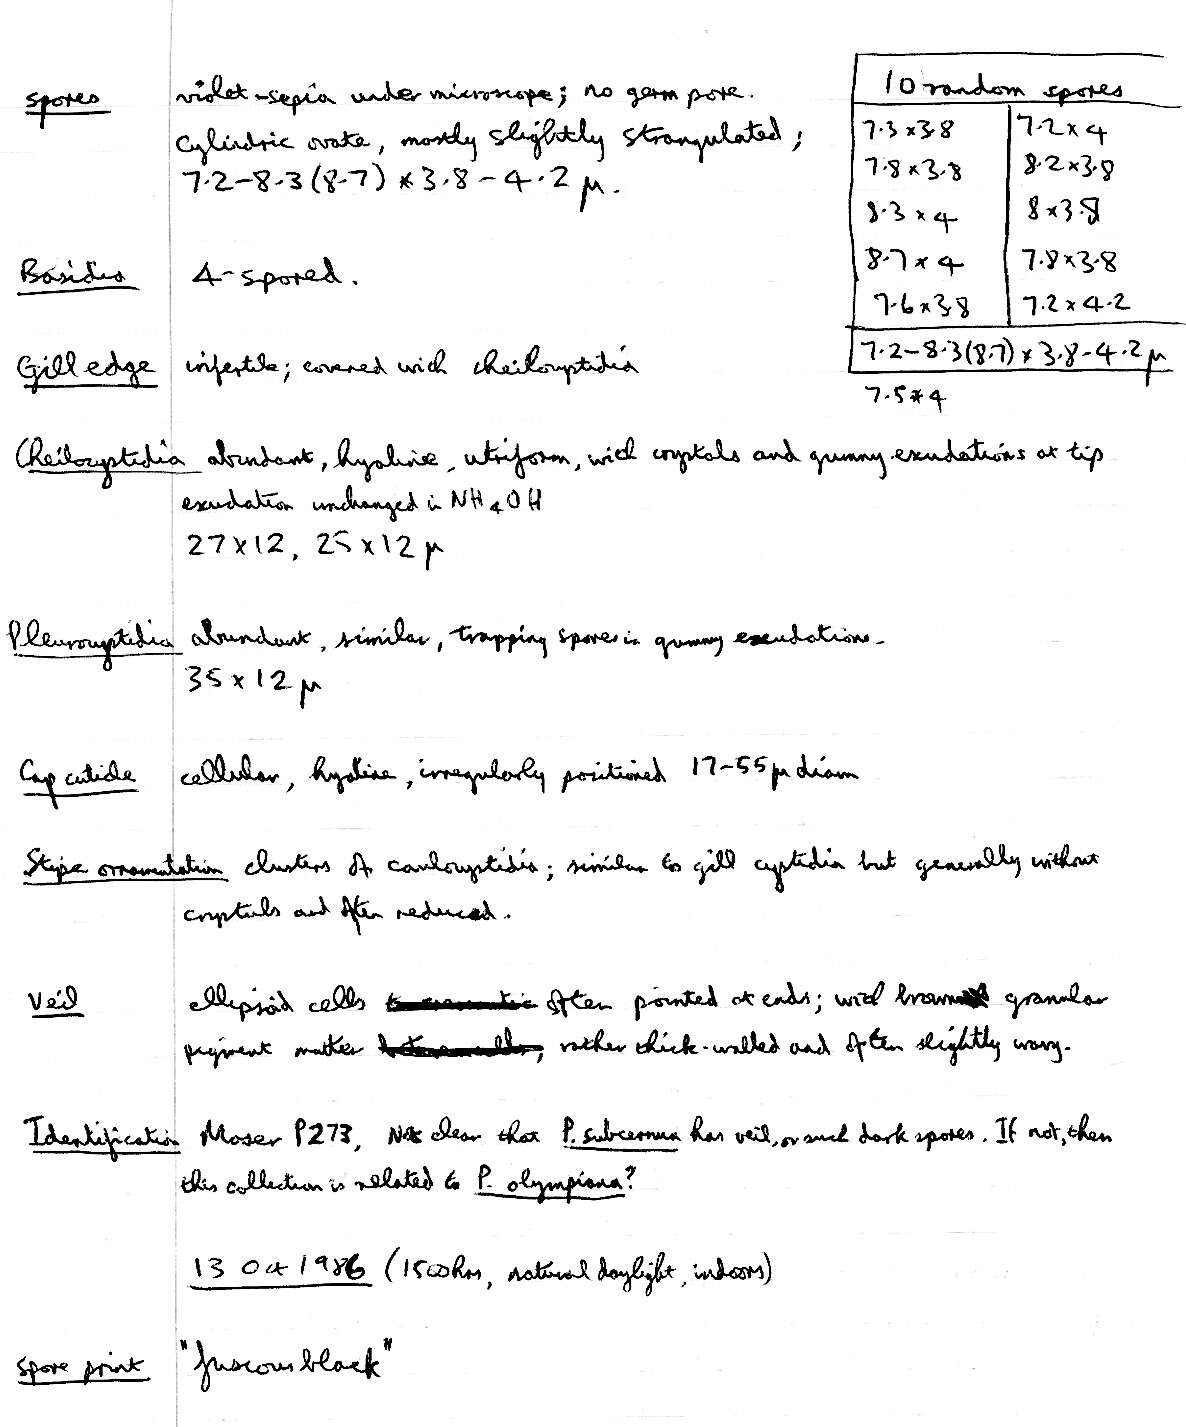 spores violet-sepia under microscope; no germ pore.
Cylindric ovate, mostly slightly strangulated;
7.2-8.3(8.7) x 3.8-4.2 μ.
10 random spores
7.3 x 3.8 7.2 x 4
7.8 x 3.8 8.2 x 3.8
8.3 x 4 8 x 3.8
8.7 x 4 7.8 x 3.8
7.6 x 3.8 7.2 x 4.2
7.2-8.3(8.7) x 3.8-4.2 μ
7.5 x 4
Basidia 4-spored.
Gill edge infertile; covered with cheilocystidia
Cheilocystidia abundant, hyaline, utriform, with crystals and gummy exudations at tip
exudation unchanged in NH4OH
27 x 12, 25 x 12 μ
Pleurocystidia abundant, similar, trapping spores in gummy exudations.
35 x 12 μ
Cap cuticle cellular, hyaline, irregularly positioned 17-55 μ diam
Stipe ornamentation clusters of caulocystidia; similar to gill cystidia but generally without
crystals and often reduced.
Veil ellipsoid cells often pointed at ends; with brown granular
pigment matter, rather thick-walled and often slightly wavy.
Identification Moser P273, Not clear that P. subcernua has veil, or such dark spores. If not, then
this collection is related to P. olympiana?
13 Oct 1986 (1500hrs, natural daylight, indoors)
spore print "fuscous black"